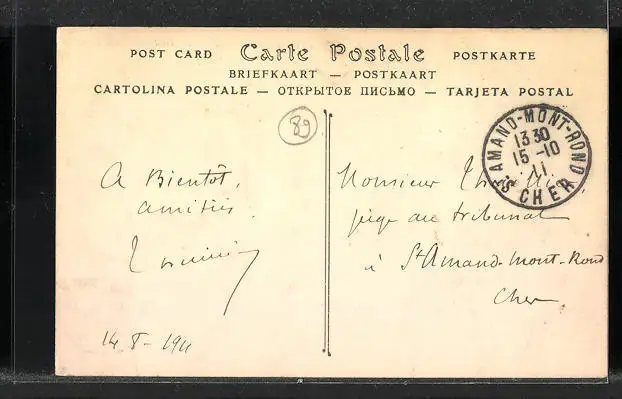 POST CARD Carte Postale POSTKARTE
BRIEFKAART — POSTKAART
CARTOLINA POSTALE — ОТКРЫТОЕ ПИСЬМО — TARJETA POSTAL
89
ST AMAND-MONT-ROND
1330
15-10
11
CHER
A Bientôt,
amitiés
14 8- 1911
Monsieur
juge au tribunal
à St Amand-Mont-Rond
Cher